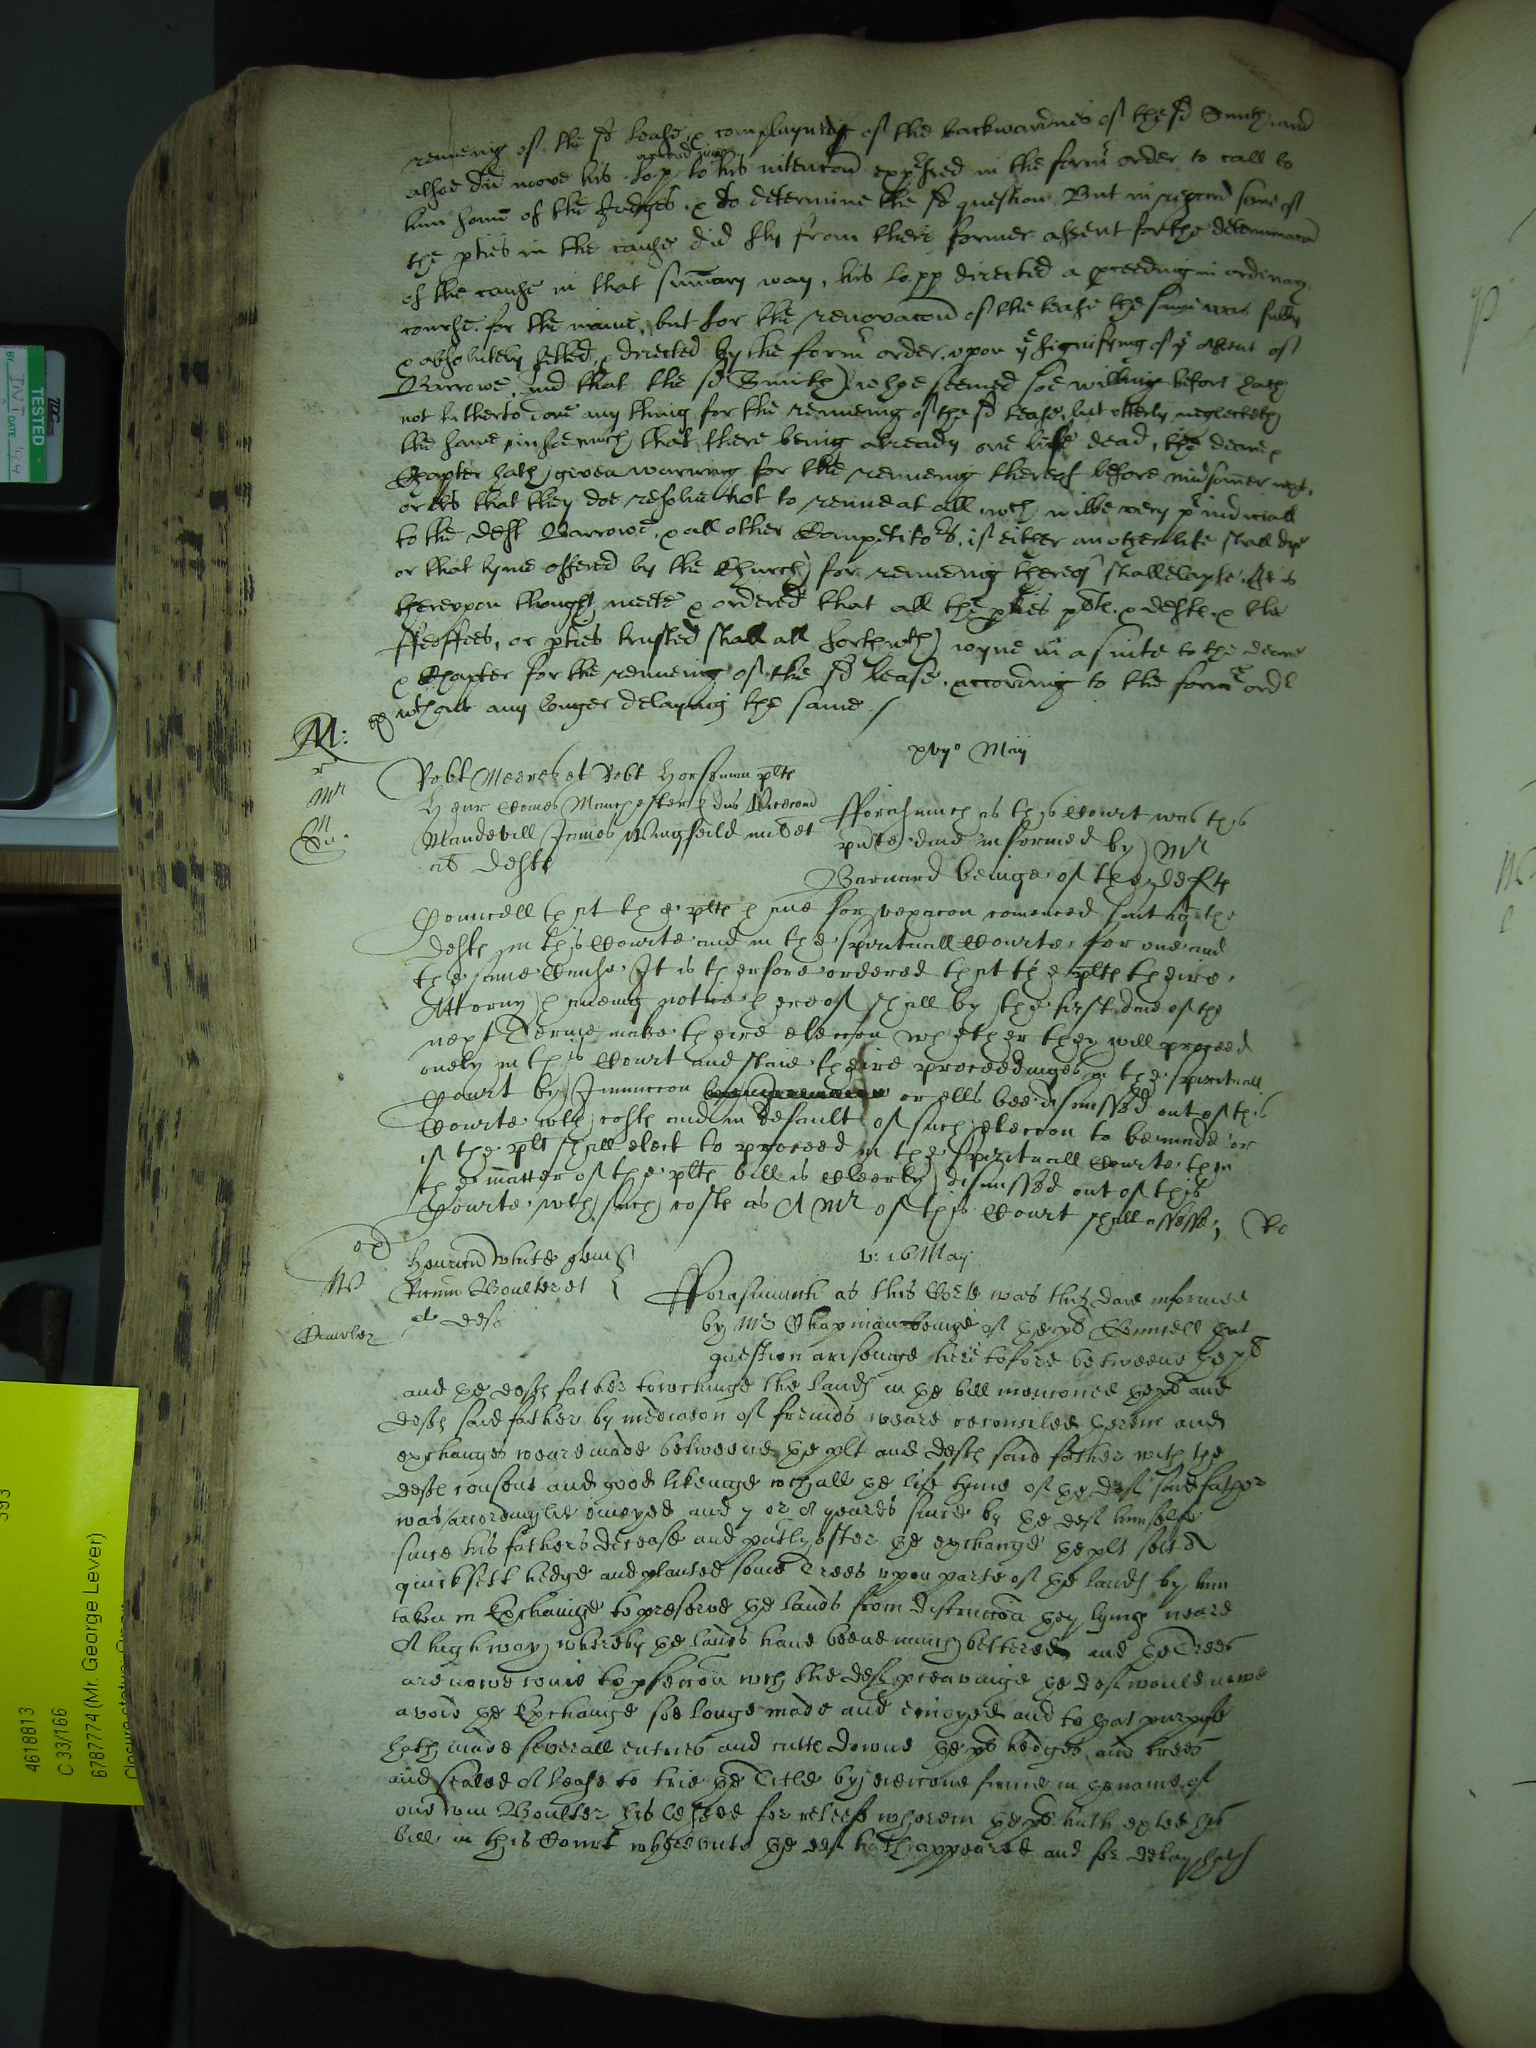 renueing of the sd lease, & complayning of the backwardnes of the sd Smith, and
alsoe did move his Lo:pp according to his intencon expressed in the former order to call to
him some of the Judges, & to determine the sd question But in regard some of
the pties in the cause did fly from their former assent for the determinacon
of the cause in that sumary way, his Lo:pp directed a pceeding in ordinary
course for the maine, but for the renovacon of the lease the same was fully
& absolutely setled & directed by the former order, upon ye signifying of ye assent of
Barrowe, and that the sd Smith whoe seemed soe willing before hath
not hitherto done any thing for the renueing of the sd lease, but utterly neglecteth
the same, insoemuch that there being already one life dead, the deane &
Chapter hath given warning for the renueing thereof before midsomer next,
or els that they doe resolve not to renue at all, wch wilbe very preiudiciall
to the deft Barrowe, & all other Competitors, if either another life shall dye
or that tyme offered by the Church for renueing thereof shall elapse. It is
thereupon thought meete & ordered that all the pties plte & defte & the
ffeoffees, or pties trusted shall all forthwth ioyne in a suite to the deane
& Chapter for the renueing of the sd lease, according to the former order
wthout any longer delaying the same /
xvijo Maij
Robt Moore et Robt Horseman plte
Henr Comes Manchester dns Vicecom
Mandevill James Wingfeild mil et
al defte
fforasmuch as this Court was this
pnte daie informed by Mr
Barnard beinge of the defte
Councell that the plte sue for vexacon comenced suit agt the
defte in this Courte and in the spirituall Courte, for one and
the same Cause It is therfore ordered that the plte theire
Attorny haueing notice hereof shall by the first daie of the
next Terme make theire eleccon whether they will proceed
onely in this Court and staie theire proceedinges in the spirituall
Court by Iniunccon or ells bee dismissed out of this
Courte wth coste and in default of such eleccon to be made or
if the plt shall elect to proceed in the spirituall Courte then
the matter of the plte bill is cleerly dismissed out of this
Courte wth such coste as A Mr of this Court shall assesse;
v: 16 May
Henricu White gen
Boulter et
al defs
fforasmuch as this Corte was this daie informed
by Mr Chapman beinge of ye pls Councell yat
question ariseinge heretofore betweene ye pl
and ye defts father towchinge the lands in ye bill mencioned ye pl and
defts said father by mediacon of freinds weare reconciled herein and
exchanges weare made betweene ye plt and defts said father with the
defts consent and good likeinge wch all ye life tyme of ye defts said father
was accordinglie enioyed and 7 or 8 yeares since by ye deft himselfe
since his fathers decease and prtly after ye exchange ye plt sett A
quicksett hedge and planted some Trees upon parte of ye lands by him
taken in Exchange to preserve ye lands from distruccon yey lying neare
A high way whereby ye lands have beene much bettered and ye Trees
are nowe come to pfeccon wch the deft pceavinge ye deft would nowe
avoid ye Exchange soe longe made and enioyed and to yat purpose
hath made severall entries and cutt downe ye pls hedges and trees
and sealed A lease to trie ye Title by eiectione firme in ye name of
one Wm Boulter his lessee for releefe wherein ye pl hath exhibited his
bill in this Court whereunto ye deft hath appeared and for delay hath
TESTED
BY
DATE
4618813
C 33/166
6787774 (Mr. George Lever)
Closure status: Open